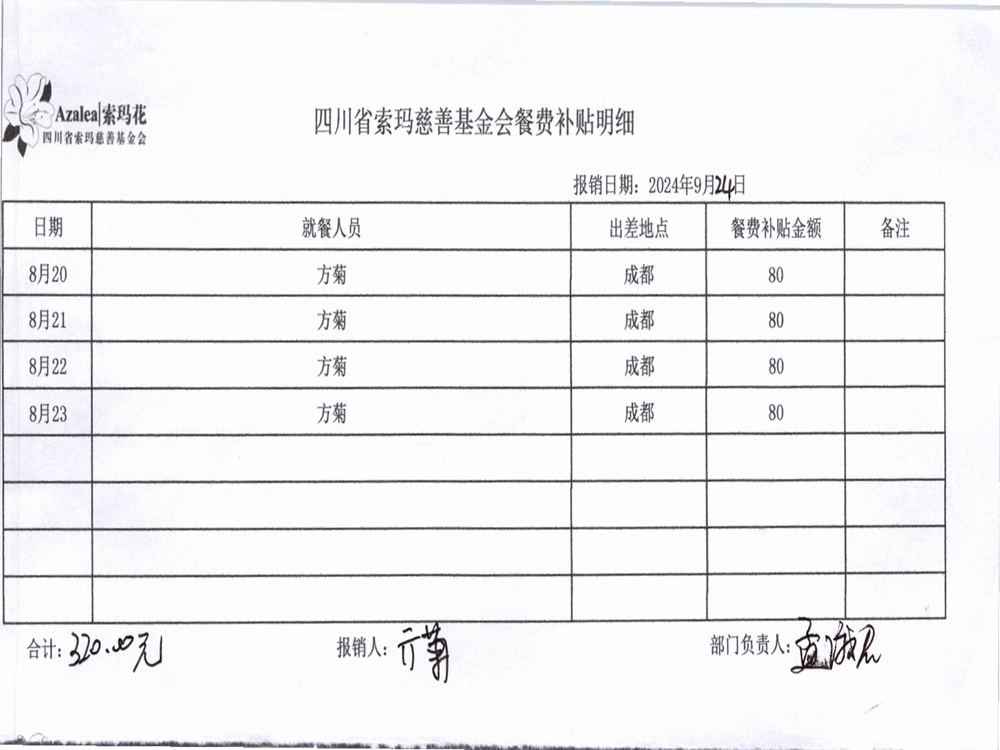 Azalea|索玛花
四川省索玛慈善基金会
四川省索玛慈善基金会餐费补贴明细
报销日期：2024年9月24日
日期 就餐人员 出差地点 餐费补贴金额 备注
8月20 方菊 成都 80
8月21 方菊 成都 80
8月22 方菊 成都 80
8月23 方菊 成都 80
合计：320.00元 报销人：方菊 部门负责人：孟